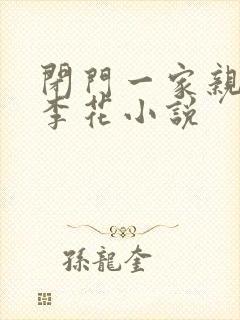 閉門一家親
李花小説
孫龍奎